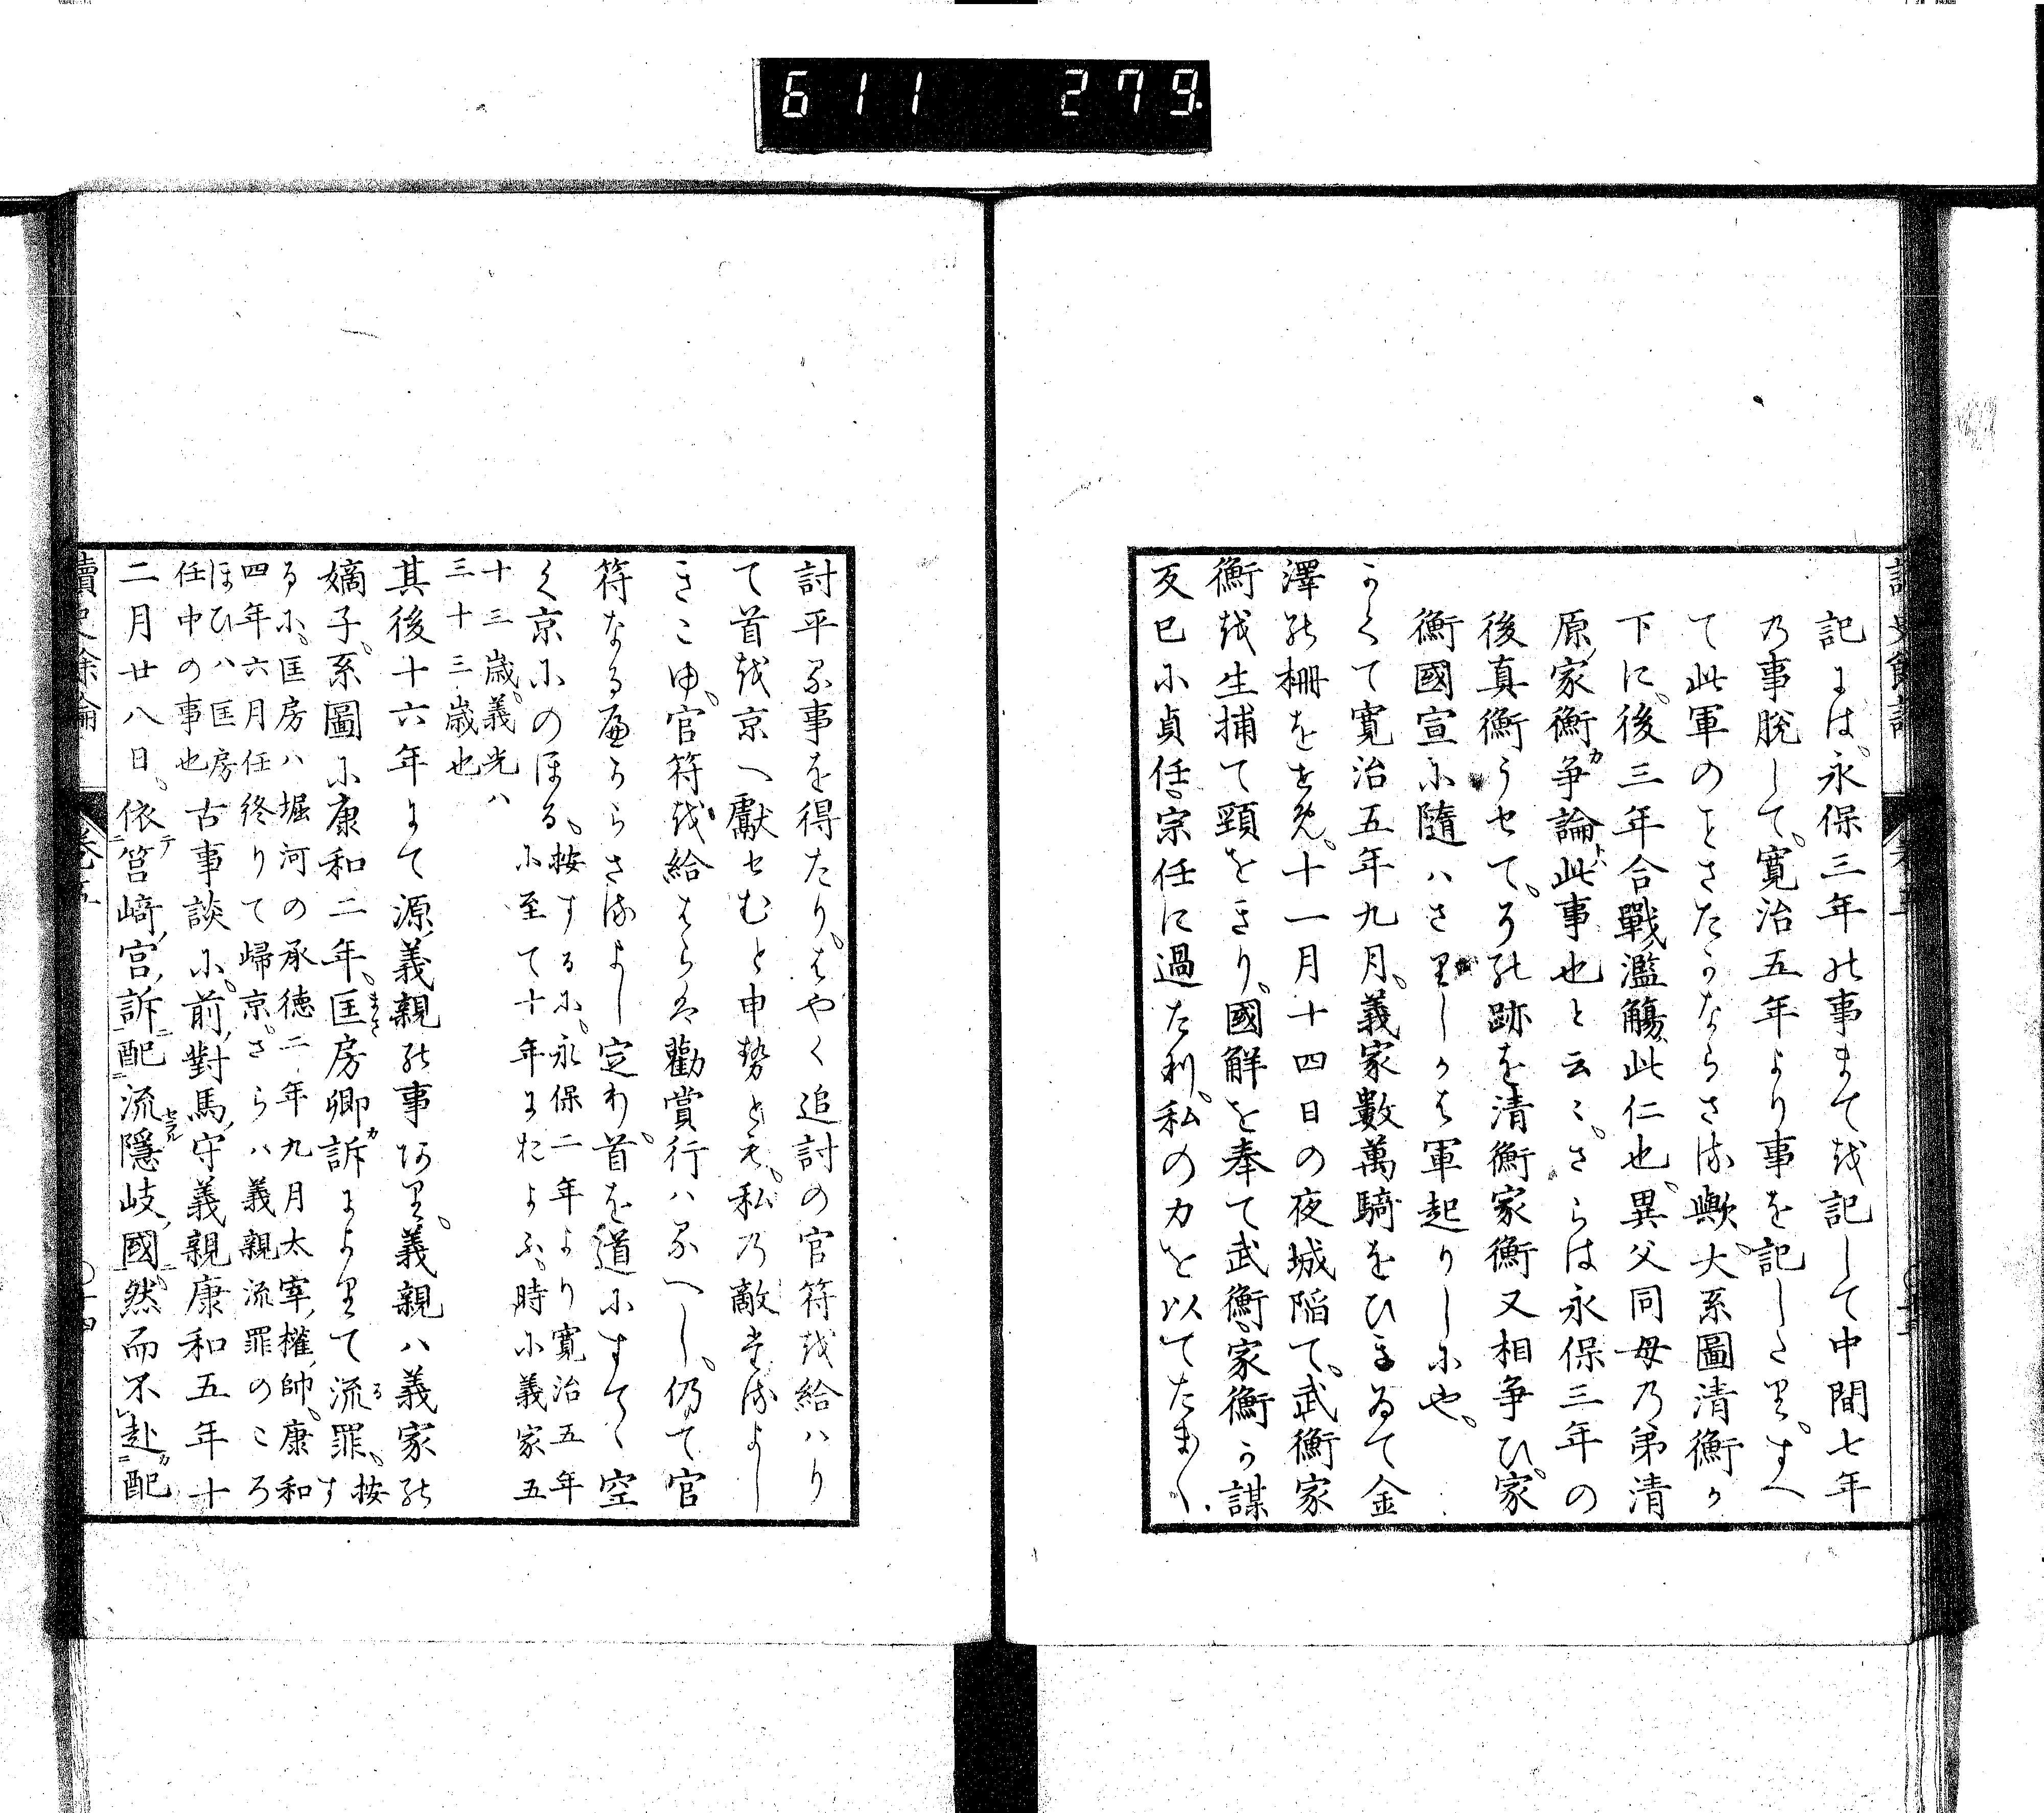 611 279
記には永保三年の事まてを記して中間七年
の事脱して寛治五年より事を記したり。すへ
て此軍のことさたかならさる歟。大系圖清衡か
下に。後三年合戰濫觴此仁也。異父同母乃弟清
原家衡カ争論此事也と云々。さらは永保三年の
後真衡うせて。その跡を清衡家衡又相争ひ。家
衡國宣に隨ハさりしかは軍起りしにや。
かくて寛治五年九月。義家數萬騎をひきゐて金
澤の柵をせむ。十一月十四日の夜城陷て。武衡家
衡を生捕て頸をきり。國解を奉て武衡家衡か謀
反已に貞任宗任に過たり。私の力を以てたま〱
討平る事を得たり。はやく追討の官符を給ハり
て首を京へ獻せむと申勢とも。私乃敵たるよし
きこゆ。官符を給はらは勸賞行ハるへし。仍て官
符なるへからさるよし定わ。首を道にすてゝ空
く京にのほる。按するに。永保二年より寛治五年
に至て十年におよふ。時に義家五
十三歳。義光ハ
三十三歳也
其後十六年にて源義親の事おこり。義親ハ義家の
嫡子。系圖に康和二年。匡房卿カ訴によりて流罪。按す
るに。匡房ハ堀河の承徳二年九月太宰權帥。康和
四年六月任終りて歸京。さらハ義親流罪のころ
ほひハ匡房
任中の事也
古事談に。前對馬守義親康和五年十
二月廿八日。依筥﨑宮訴配流隱岐國。然而不赴配
讀史餘論 卷五